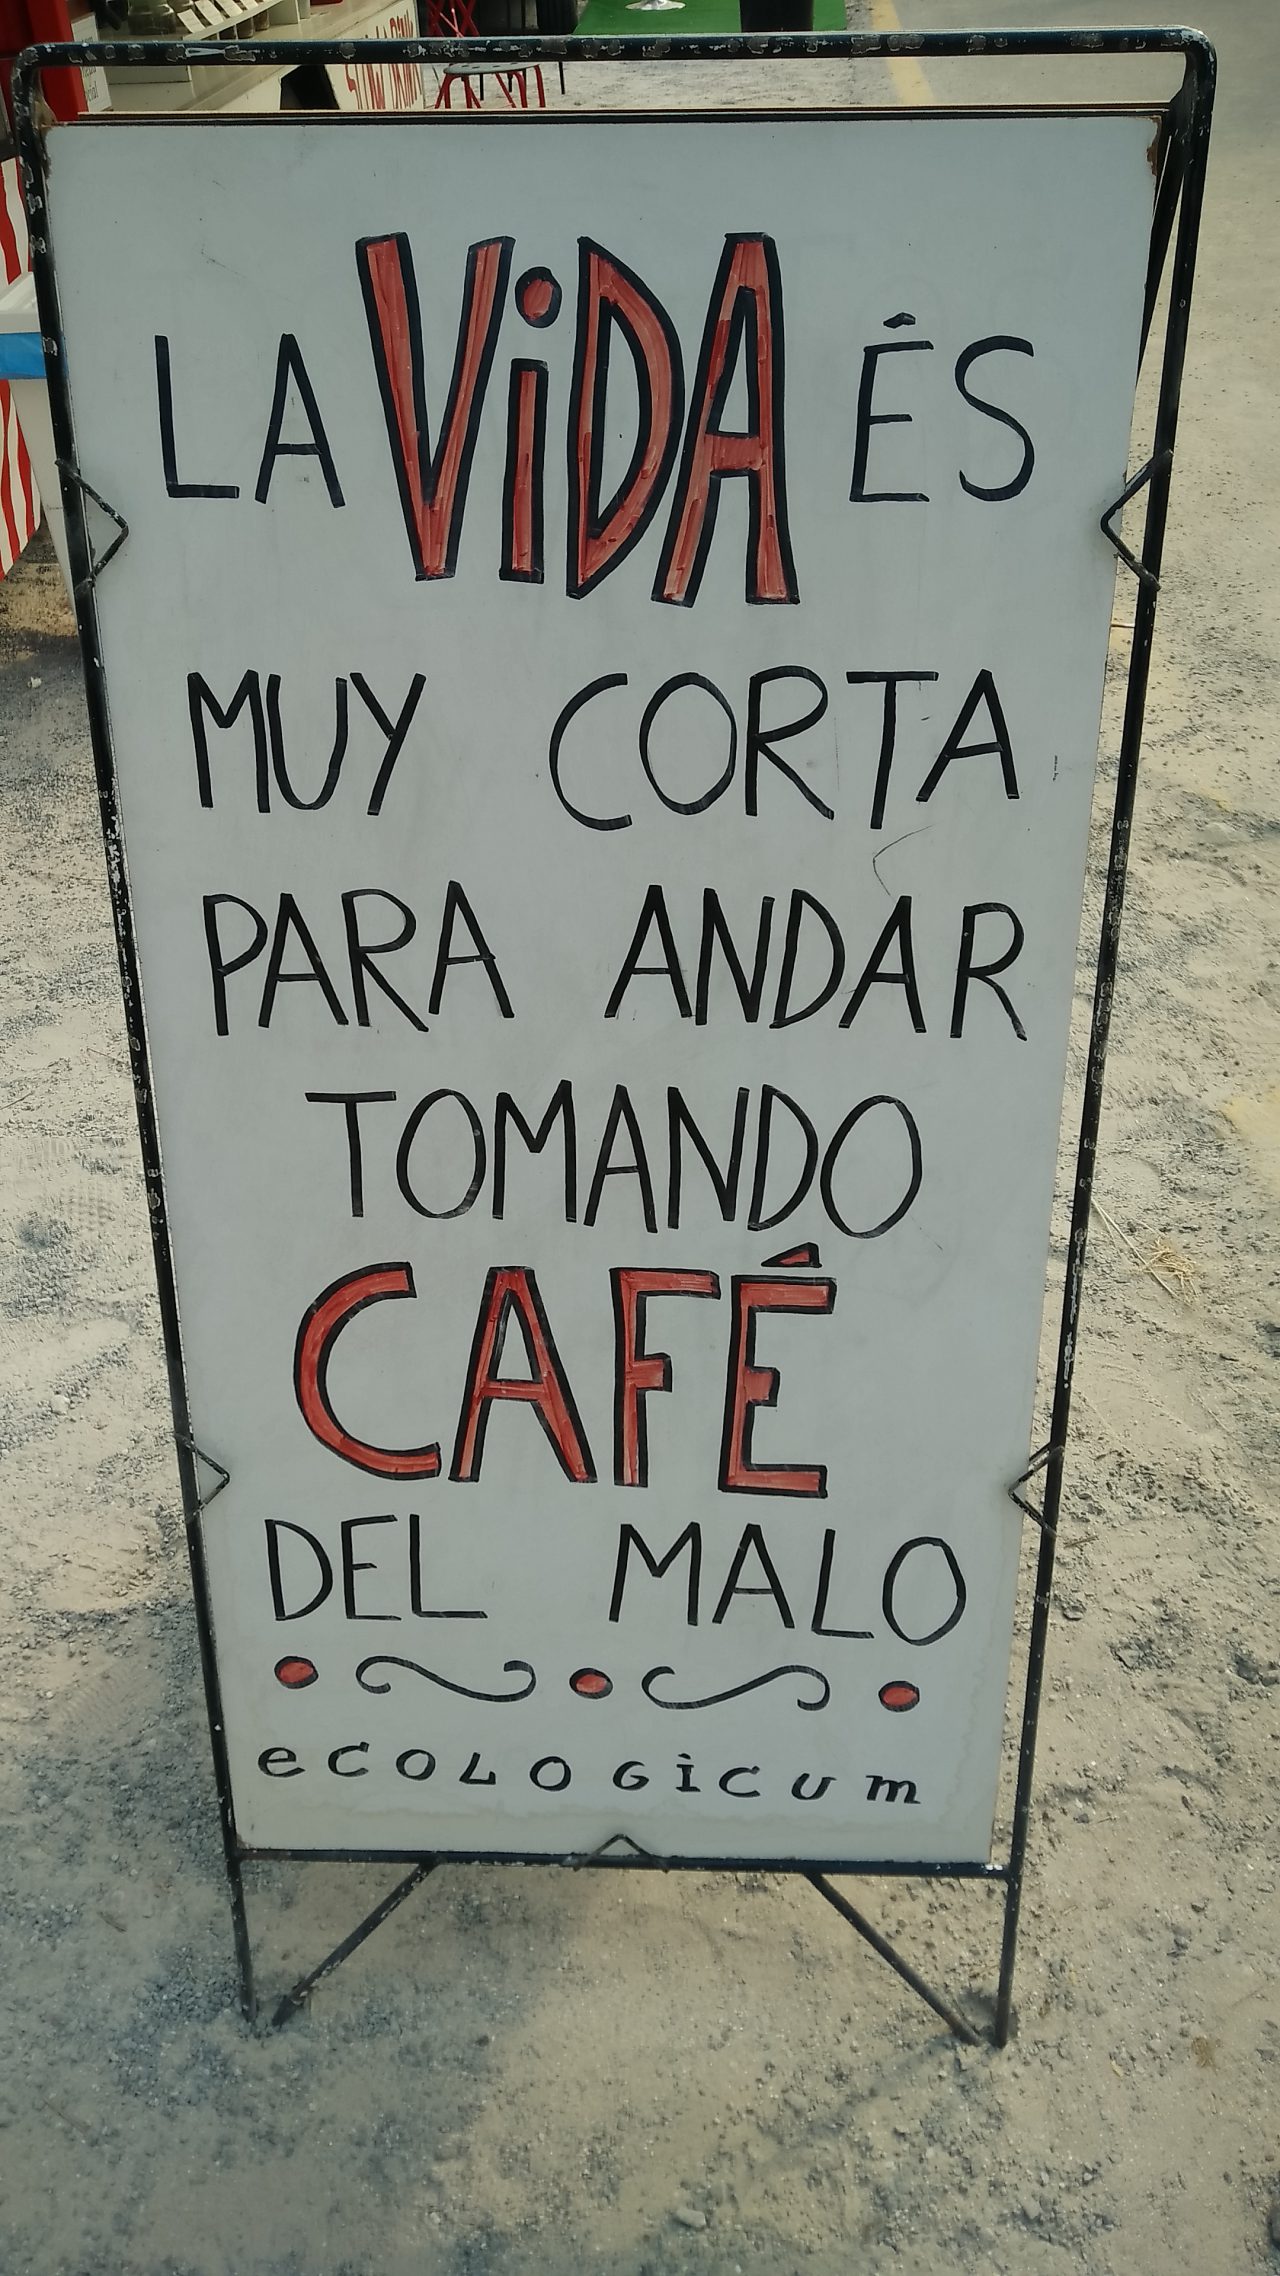 LA ViDA ÉS
MUY CORTA
PARA ANDAR
TOMANDO
CAFÉ
DEL MALO
eCOLOGiCUm